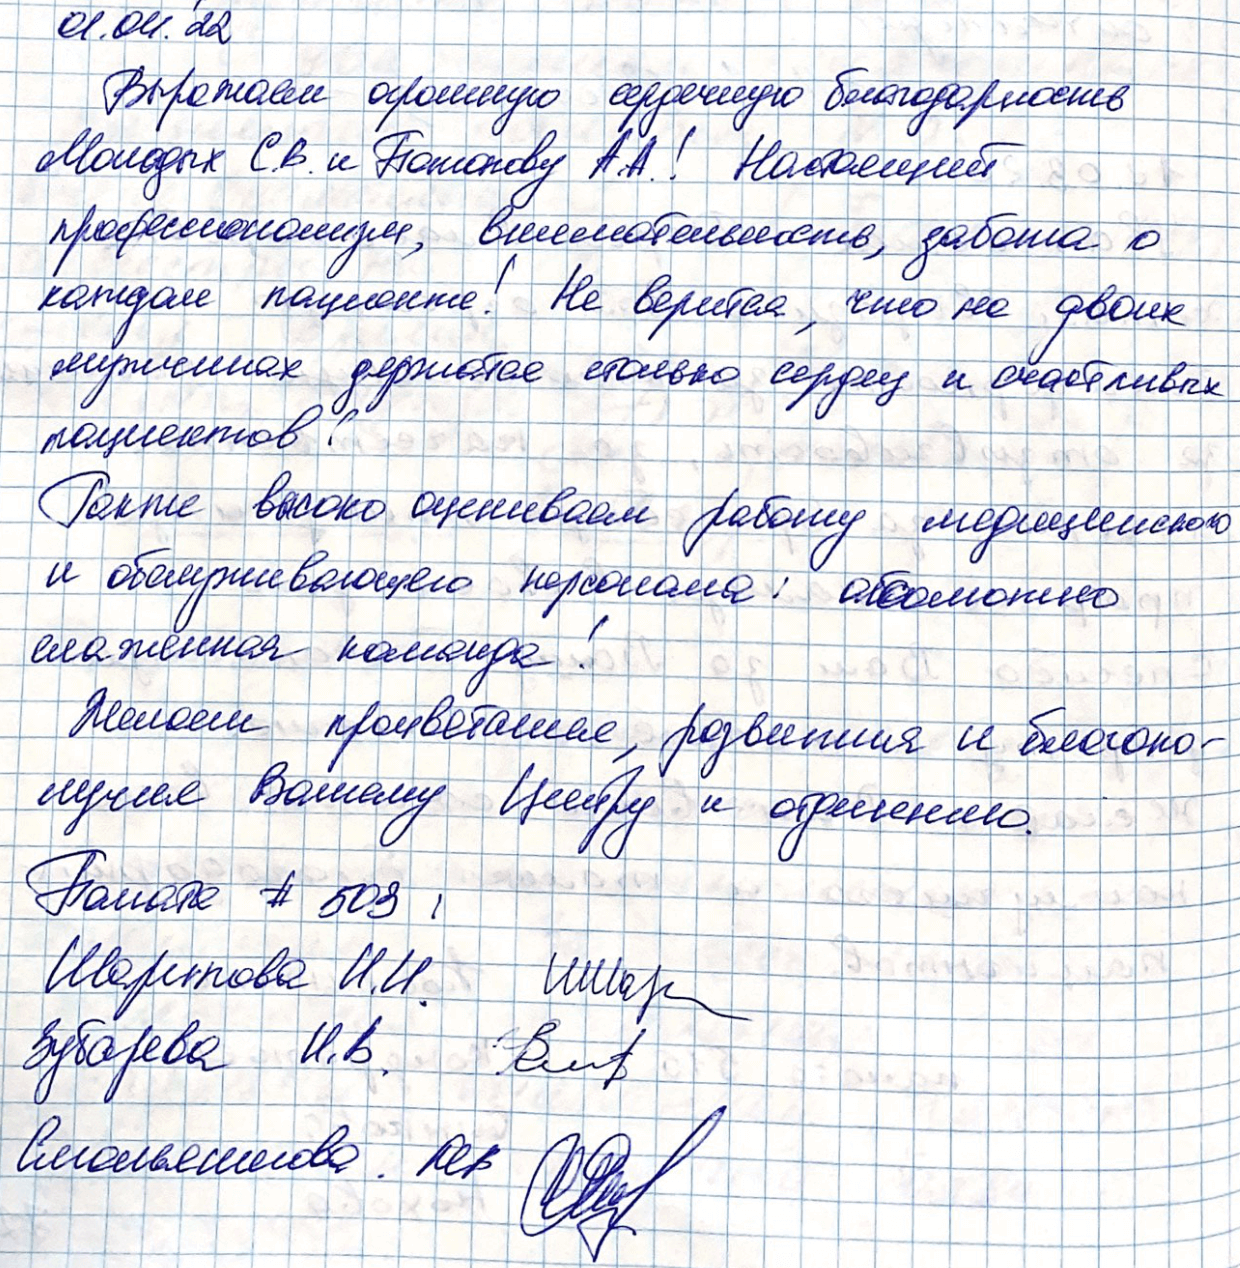 01.04.22
Выражаем огромную сердечную благодарность
Молодых С.В. и Потапову А.А.! Настоящий
профессионализм, внимательность, забота о
каждом пациенте! Не верится, что на двоих
мужчинах держатся столько сердец и счастливых
пациентов!
Также высоко оцениваем работу медицинского
и обслуживающего персонала: абсолютно
слаженная команда!
Желаем процветания, развития и благопо-
лучия Вашему Центру и отделению.
Палата # 503:
Шарыпова И.И.
Зубарева Н.В.